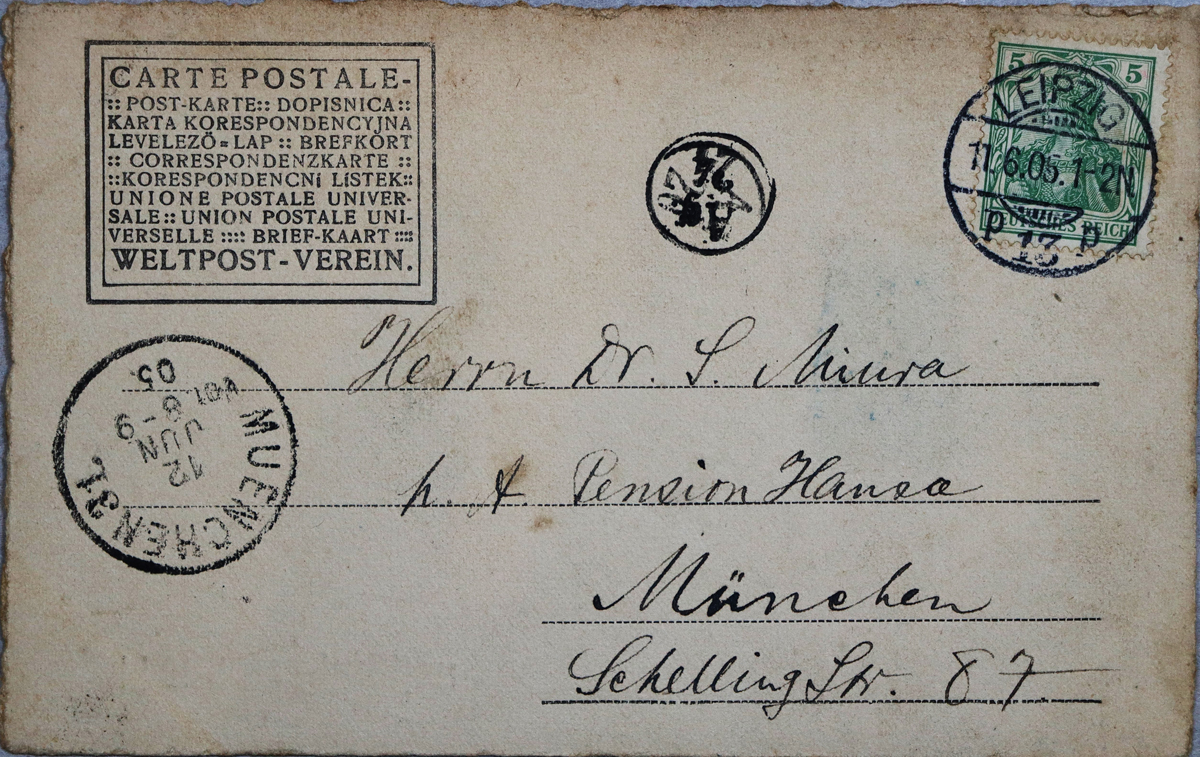 CARTE POSTALE-
:: POST-KARTE:: DOPISNICA ::
KARTA KORESPONDENCYJNA
LEVELEZŐ=LAP :: BREFKORT
:: CORRESPONDENZKARTE ::
::KORESPONDENCNÍ LÍSTEK::
UNIONE POSTALE UNIVER-
SALE:: UNION POSTALE UNI-
VERSELLE :::: BRIEF-KAART ::::
WELTPOST-VEREIN.
5 5
DEUTSCHES REICH
LEIPZIG
11.6.05.1-2N
p 13 p
A
24
MUENCHEN 31.
12
JUN
8-9
05.
Herrn Dr. S. Miura
p. A Pension Hansa
München
Schelling Str. 87